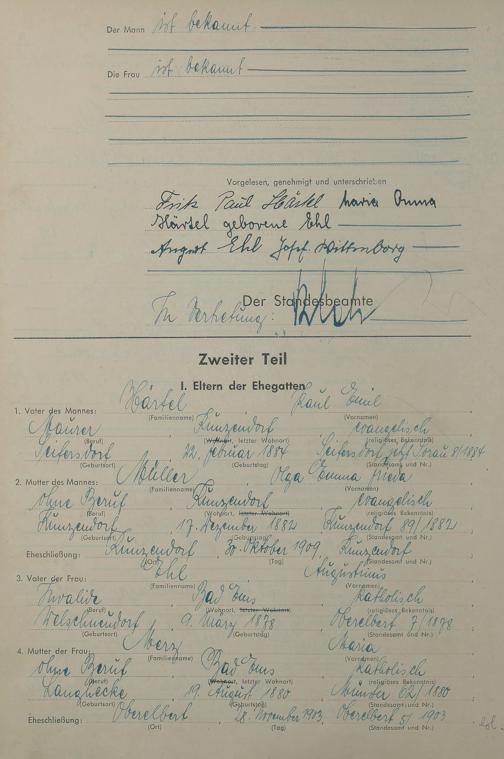 Der Mann ist bekannt
Die Frau ist bekannt
Vorgelesen, genehmigt und unterschrieben
Fritz Paul Härtel Maria Anna
Härtel geborene Ehl
August Ehl Josef Wittenborg
Der Standesbeamte
In Vertretung:
Zweiter Teil
I. Eltern der Ehegatten
1. Vater des Mannes: Härtel Paul Emil
(Familienname) (Vornamen)
Maurer Kunzendorf evangelisch
(Beruf) (Wohnort, letzter Wohnort) (religiöses Bekenntnis)
Seifersdorf 22. Februar 1884 Seifersdorf jetzt Sorau 8/1884
(Geburtsort) (Geburtstag) (Standesamt und Nr.)
2. Mutter des Mannes: Müller Olga Emma Frieda
(Familienname) (Vornamen)
ohne Beruf Kunzendorf evangelisch
(Beruf) (Wohnort, letzter Wohnort) (religiöses Bekenntnis)
Kunzendorf 17. Dezember 1882 Kunzendorf 89/1882
(Geburtsort) (Geburtstag) (Standesamt und Nr.)
Eheschließung: Kunzendorf 30. Oktober 1909, Kunzendorf
(Ort) (Tag) (Standesamt und Nr.)
3. Vater der Frau: Ehl Augustinus
(Familienname) (Vornamen)
Invalide Bad Ems katholisch
(Beruf) (Wohnort, letzter Wohnort) (religiöses Bekenntnis)
Welschneudorf 9. März 1878 Oberelbert 7/1878
(Geburtsort) (Geburtstag) (Standesamt und Nr.)
4. Mutter der Frau: Merz Maria
(Familienname) (Vornamen)
ohne Beruf Bad Ems katholisch
(Beruf) (Wohnort, letzter Wohnort) (religiöses Bekenntnis)
Langhecke 19. August 1880 Münster 62/1880
(Geburtsort) (Geburtstag) (Standesamt und Nr.)
Eheschließung: Oberelbert 28. November 1903, Oberelbert 5/1903
(Ort) (Tag) (Standesamt und Nr.)